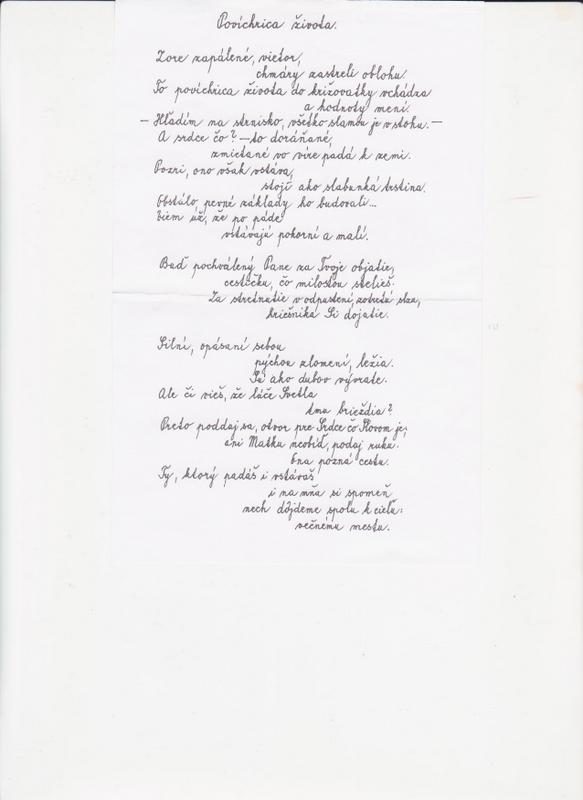 Povíchrica života.
Zore zapálené, vietor,
chmáry zastreli oblohu.
To povíchrica života do križovatky vchádza
a hodnoty mení.
— Hľadím na strnisko, všetko slamou je v stohu. —
A srdce čo? — to doráňané,
zmietané vo víre padá k zemi.
Pozri, ono však vstáva,
stojí ako slabunká trstina.
Obstálo, pevné základy ho budovali...
Viem už, že po páde
vstávajú pokorní a malí.
Buď pochválený Pane za Tvoje objatie,
cestičku, čo milosťou stelieš.
Za stretnutie v odpustení, zotretú slzu,
hriešnika Si dojatie.
Silní, opásaní sebou
pýchou zlomení, ležia.
Sú ako dubov vývrate.
Ale či vieš, že lúče Svetla
tmu brieždia?
Preto poddaj sa, otvor pre Srdce čo Slovom je,
ani Matku neobíď, podaj ruku.
Ona pozná cestu.
Ty, ktorý padáš i vstávaš,
i na mňa si spomeň,
nech dôjdeme spolu k cieľu:
večnému mestu.